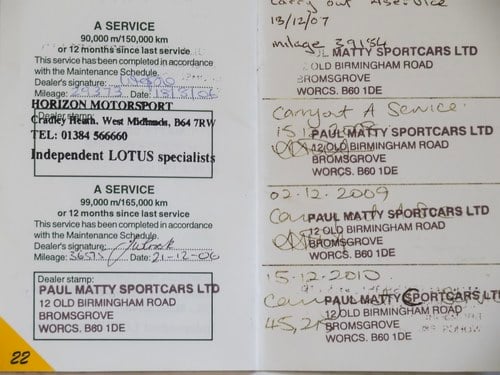 A SERVICE
90,000 m/150,000 km
or 12 months since last service
This service has been completed in accordance
with the Maintenance Schedule.
Dealer's signature:
Mileage: 29373 Date:
HORIZON MOTORSPORT
Dealer stamp:
Cradley Heath, West Midlands, B64 7RW
TEL: 01384 566660
Independent LOTUS specialists
A SERVICE
99,000 m/165,000 km
or 12 months since last service
This service has been completed in accordance
with the Maintenance Schedule.
Dealer's signature:
Mileage: 36575 Date: 21-12-06
Dealer stamp:
PAUL MATTY SPORTCARS LTD
12 OLD BIRMINGHAM ROAD
BROMSGROVE
WORCS. B60 1DE
22
Carry out A Service
13/12/07
mileage 39156
PAUL MATTY SPORTCARS LTD
12 OLD BIRMINGHAM ROAD
BROMSGROVE
WORCS. B60 1DE
Carryout A Service.
15.12.
PAUL MATTY SPORTCARS LTD
12 OLD BIRMINGHAM ROAD
BROMSGROVE
WORCS. B60 1DE
02.12.2009
PAUL MATTY SPORTCARS LTD
12 OLD BIRMINGHAM ROAD
BROMSGROVE
WORCS. B60 1DE
15.12.2010
PAUL MATTY SPORTCARS LTD
12 OLD BIRMINGHAM ROAD
45,2
BROMSGROVE
WORCS. B60 1DE